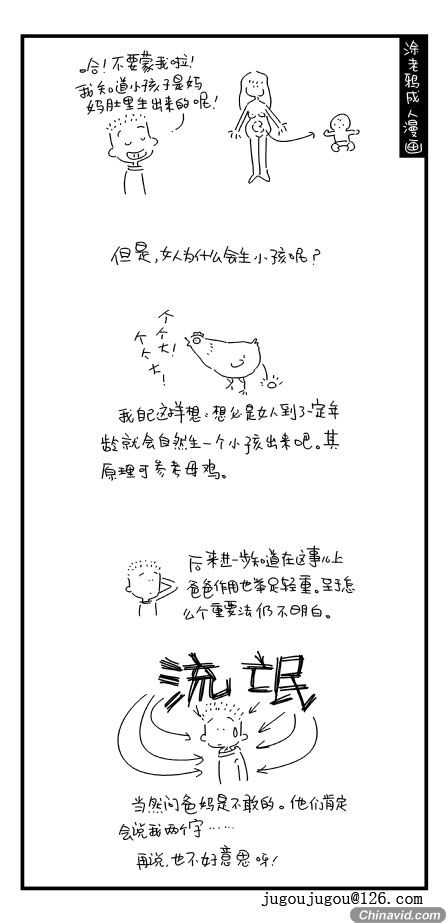 涂老鸦成人漫画
哈！不要蒙我啦！
我知道小孩子是妈
妈肚里生出来的呢！
但是，女人为什么会生小孩呢？
个
个
个
个
大！
大！
我自己这样想：想必是女人到了一定年
龄就会自然生一个小孩出来吧。其
原理可参考母鸡。
后来进一步知道在这事儿上
爸爸作用也举足轻重。至于怎
么个重要法仍不明白。
流氓
当然问爸妈是不敢的。他们肯定
会说我两个字……
再说，也不好意思呀！
jugoujugou@126.com
Chinavid.com